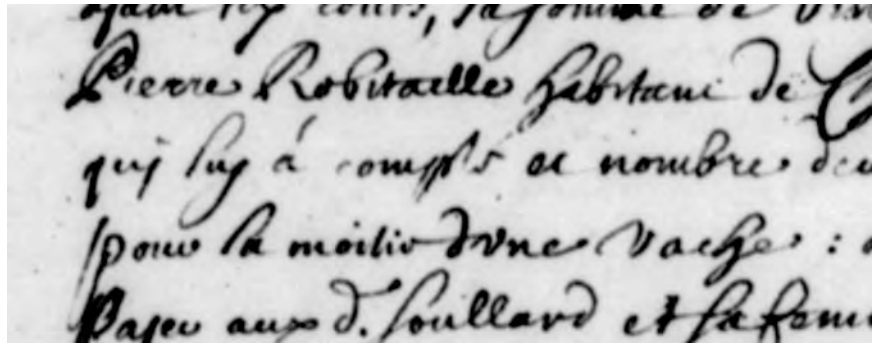 ayant cours, la somme de vin
Pierre Robitaille habitant de C
quj luy á compté et nombré deu
pour la moitié d'vne vache :
Payer aux d. Soullard et sa fem